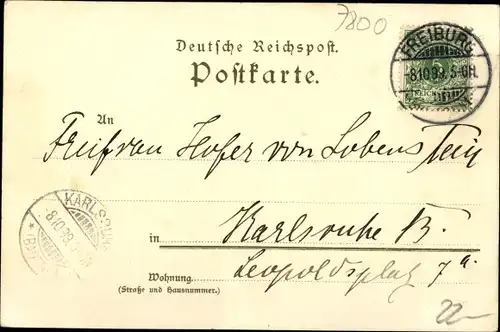 7800
Deutsche Reichspost.
Postkarte.
FREIBURG
8 10 99. 5-6N.
REICHSPOST
An
Freifrau Hofer von Lobenstein
KARLSRUHE
8 10 99
in Karlsruhe B.
Leopoldsplatz 7a.
Wohnung
(Straße und Hausnummer.)
22-